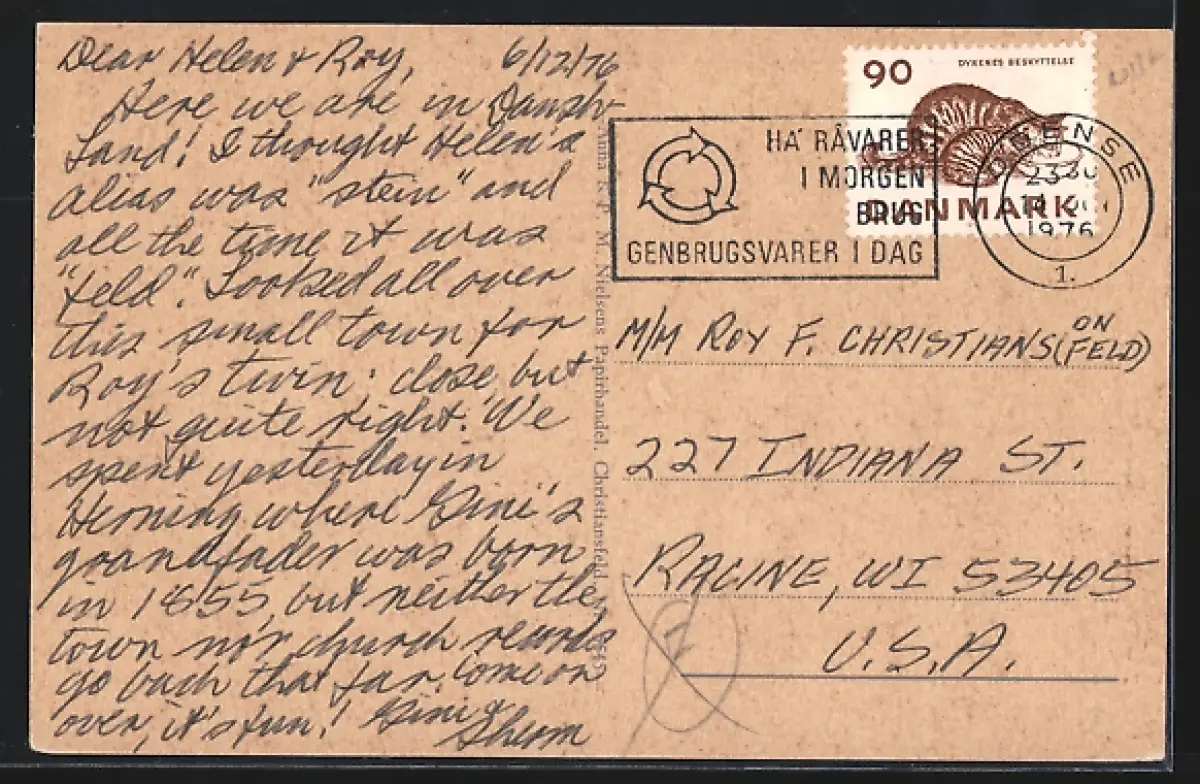 Dear Helen & Roy, 6/12/76
Here we are in Danish
Land! I thought Helen's
alias was "stein" and
all the time it was
"feld". Looked all over
this small town for
Roy's twin: close, but
not quite right. We
spent yesterday in
Herning where Gini's
grandfader was born
in 1855, but neither the
town nor church records
go back that far. Come on
over, it's fun! Gini &
Sherm
M. Nielsens Papirhandel, Christiansfeld
90
DYRENES BESKYTTELSE
DANMARK
HA' RÅVARER
I MORGEN
BRUG
GENBRUGSVARER I DAG
ODENSE
1976
1.
M/M ROY F. CHRISTIANS(FELD)
ON
227 INDIANA ST.
RACINE, WI 53405
U.S.A.